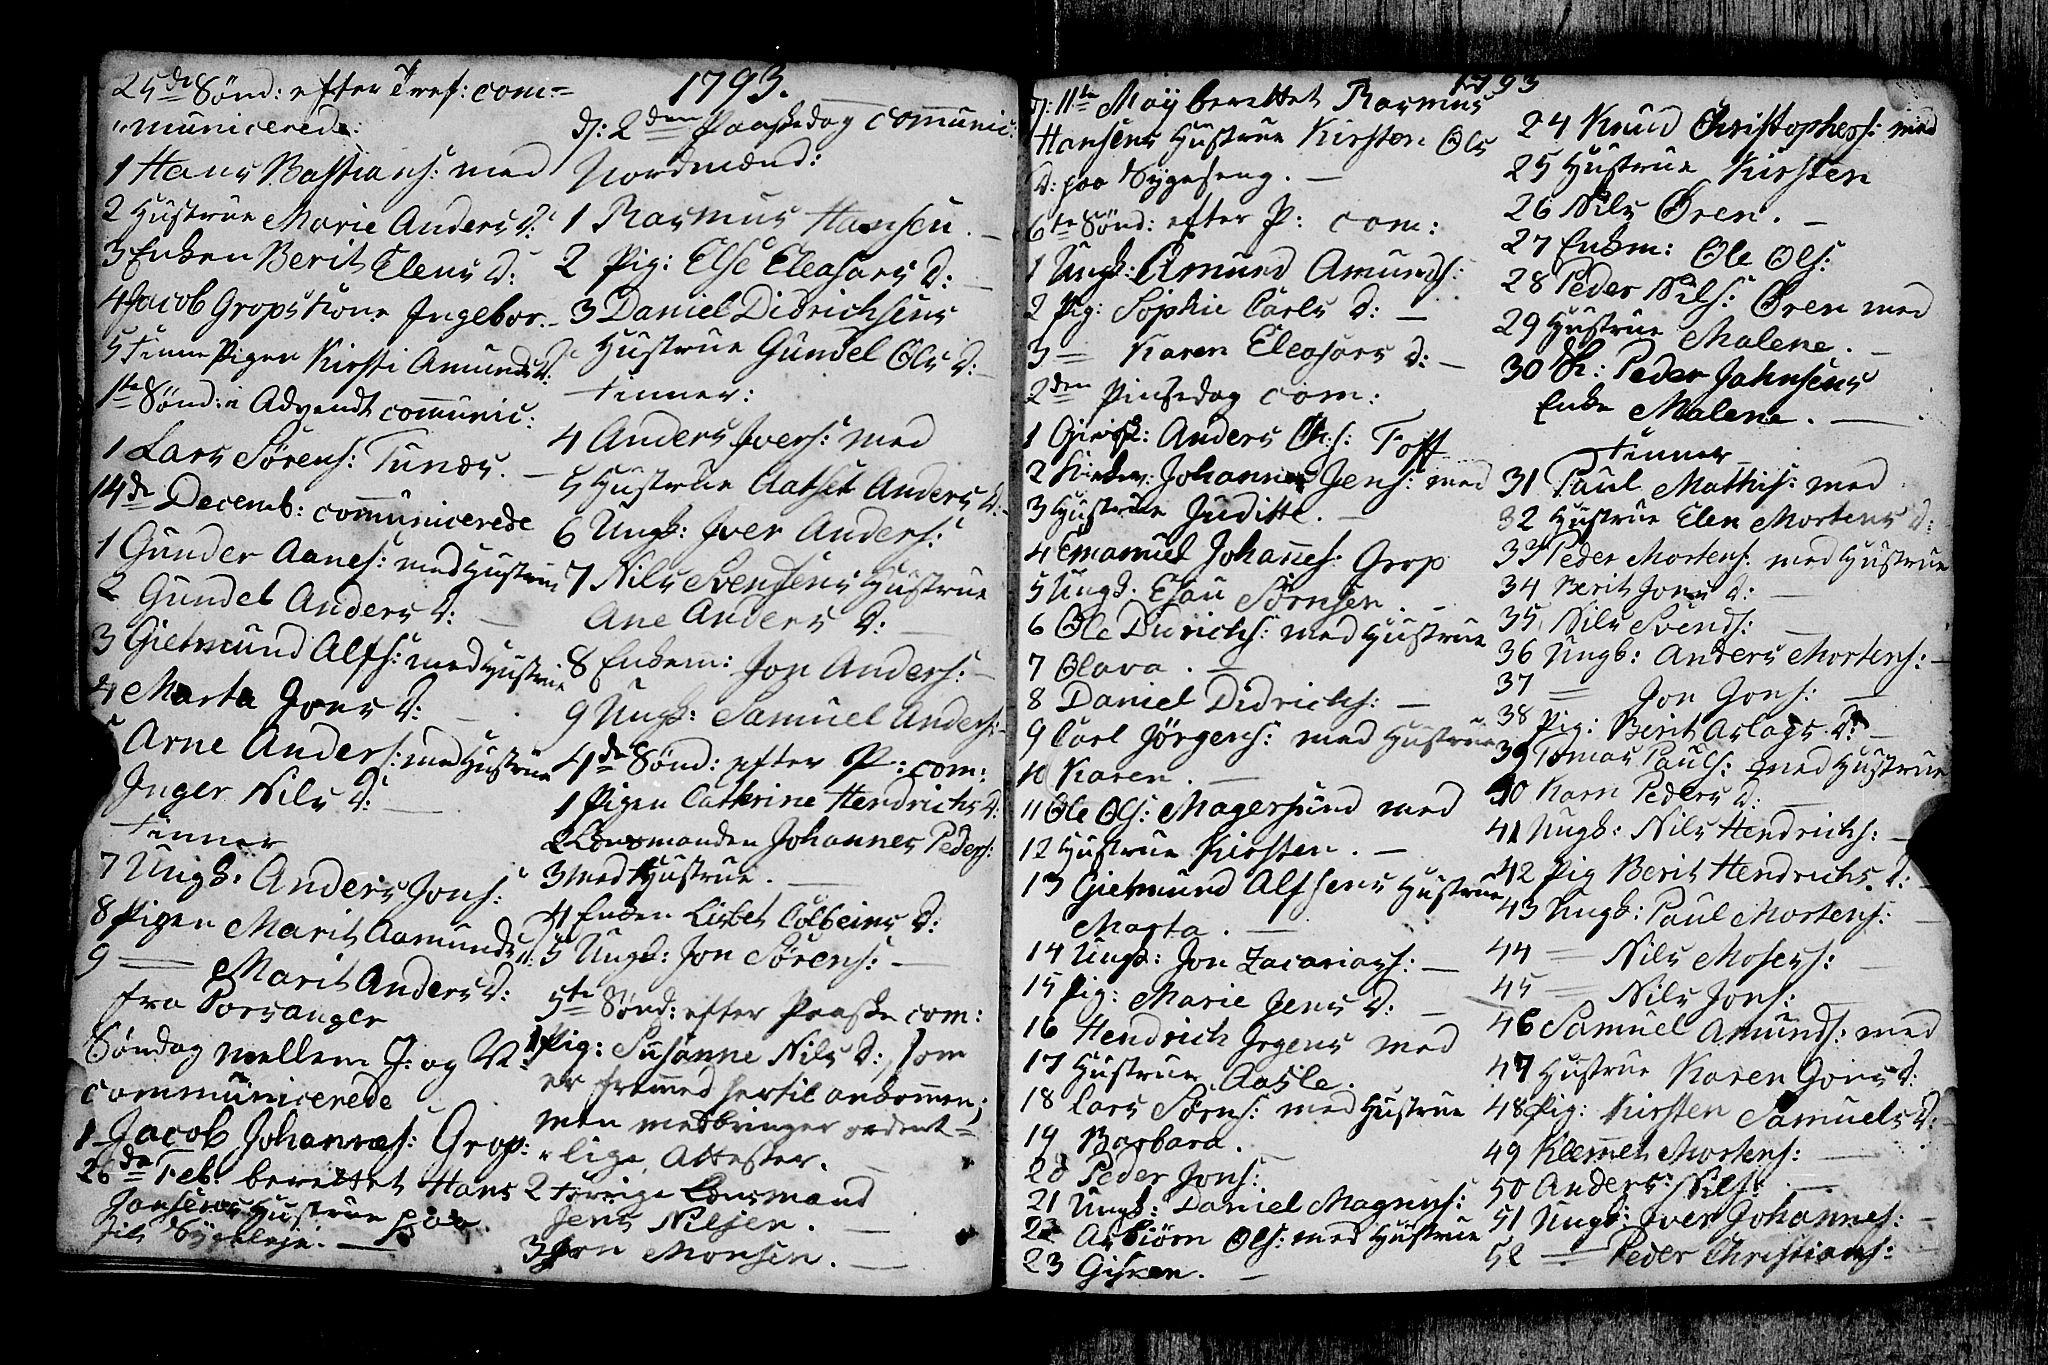 25de Sønd: efter Tref: com=
"municerede:
1 Hans Bastians: med
2 Hustrue Marie Anders D:
3 Enken Berit Elens D:
4 Jacob Grops Kone Ingebor.
5 Tienne Pigen Kirsti Amunds D:
1ste Sønd: i Advendt communic:
1 Lars Sørens: Tunæs. —
14de Decemb: communicerede
1 Gunder Aanes: med Hustrue
2 Gundel Anders D: —
3 Gietmund Alfs: med Hustrue
4 Marta Jons D: —
5 Arne Anders: med Hustrue
Inger Nils D: —
Finner
7 Ungk: Anders Jons:
8 Pigen Marit Aamunds D:
9 — Marit Anders D:
fra Porsanger
Søndag mellem J: og N:
communicerede
1 Jacob Johannes: Grop:
26de Feb. berettet Hans
Jansens Hustrue paa
sit Sygeleje. —
1793.
d: 2den Paaskedag communic:
Nordmænd:
1 Rasmus Hansen. —
2 Pig: Else Eleasars D: —
3 Daniel Didrichsens
Hustrue Gundel Ols D: —
Finner:
4 Anders Ivers: med
5 Hustrue Aathet Anders D:
6 Ungk: Iver Anders:
7 Nils Svendsens Hustrue
Ane Anders D: —
8 Enkem: Jon Anders: —
9 Ungk: Samuel Anders: —
4de Sønd: efter P: com:
1 Pigen Cathrine Hendrichs D:
2 Lensmanden Johannes Peders:
3 med Hustrue. —
4 Enken Lisbet Colbeins D:
5 Ungk: Jon Sørens: —
5te Sønd: efter Paaske com:
1 Pig: Susanne Nils D: som
er fremmed hertil ankommen;
men medbringer ordent=
"lige Attester. —
2 forrige Lensmand
Jens Nilsen. —
3 Jon Monsen. —
1793
d: 11te Maÿ berettet Rasmus
Hansens Hustrue Kirsten Ols
D: paa Sygeseng. —
6te Sønd: efter P: com:
1 Ungk: Amund Amunds:
2 Pig: Sophie Carls D: —
3 = Karen Eleasars D: —
2den Pinsedag com:
1 Anders Toft
2 Johannes Jens: med
3 Hustrue Juditte. —
4 Emanuel Johannes: Grop
5 Ungk: Esau Sørnsen. —
6 Ole Didrichs: med Hustrue
7 Olava. —
8 Daniel Didrichs: —
9 Carl Jörgens: med Hustrue
10 Karen. —
11 Ole Ols: Magersund med
12 Hustrue Kirsten. —
13 Gietmund Alfsens Hustrue
Marta. —
14 Ungk: Jon Zacarias: —
15 Pig: Marie Jens D: —
16 Hendrich Jrgens med
17 Hustrue Aasle.
18 Lars Sørns: med Hustrue
19 Barbara. —
20 Peder Jons: —
21 Ungk: Daniel Magnus:
22 Asbiörn Ols: med Hustrue
23 Gisken. —
24 Knud Christophers: med
25 Hustrue Kirsten
26 Nils Øren. —
27 Enkem: Ole Ols:
28 Peder Nils: Øren med
29 Hustrue Malene. —
30 Peder Jahnsens
Enke Malene. —
Finner
31 Paul Mathis: med
32 Hustrue Elen Mortens D:
33 Peder Mortens: med Hustrue
34 Berit Jons D: —
35 Nils Svends: —
36 Ungk: Anders Mortens: —
37 = Jon Jons: —
38 Pig: Berit Aslags D: —
39 Tomas Pauls: med Hustrue
40 Karn Peders D: —
41 Ungk: Nils Hendrichs: —
42 Pig Berit Hendrichs D: —
43 Ungk: Paul Mortens: —
44 = Nils Moses: —
45 = Nils Jons: —
46 Samuel Amunds: med
47 Hustrue Karen Jons D:
48 Pig: Kirsten Samuels D: —
49 Klemet Mortens: —
50 Anders: Nils: —
51 Ungk: Iver Johannes: —
52 — Peder Christians: —